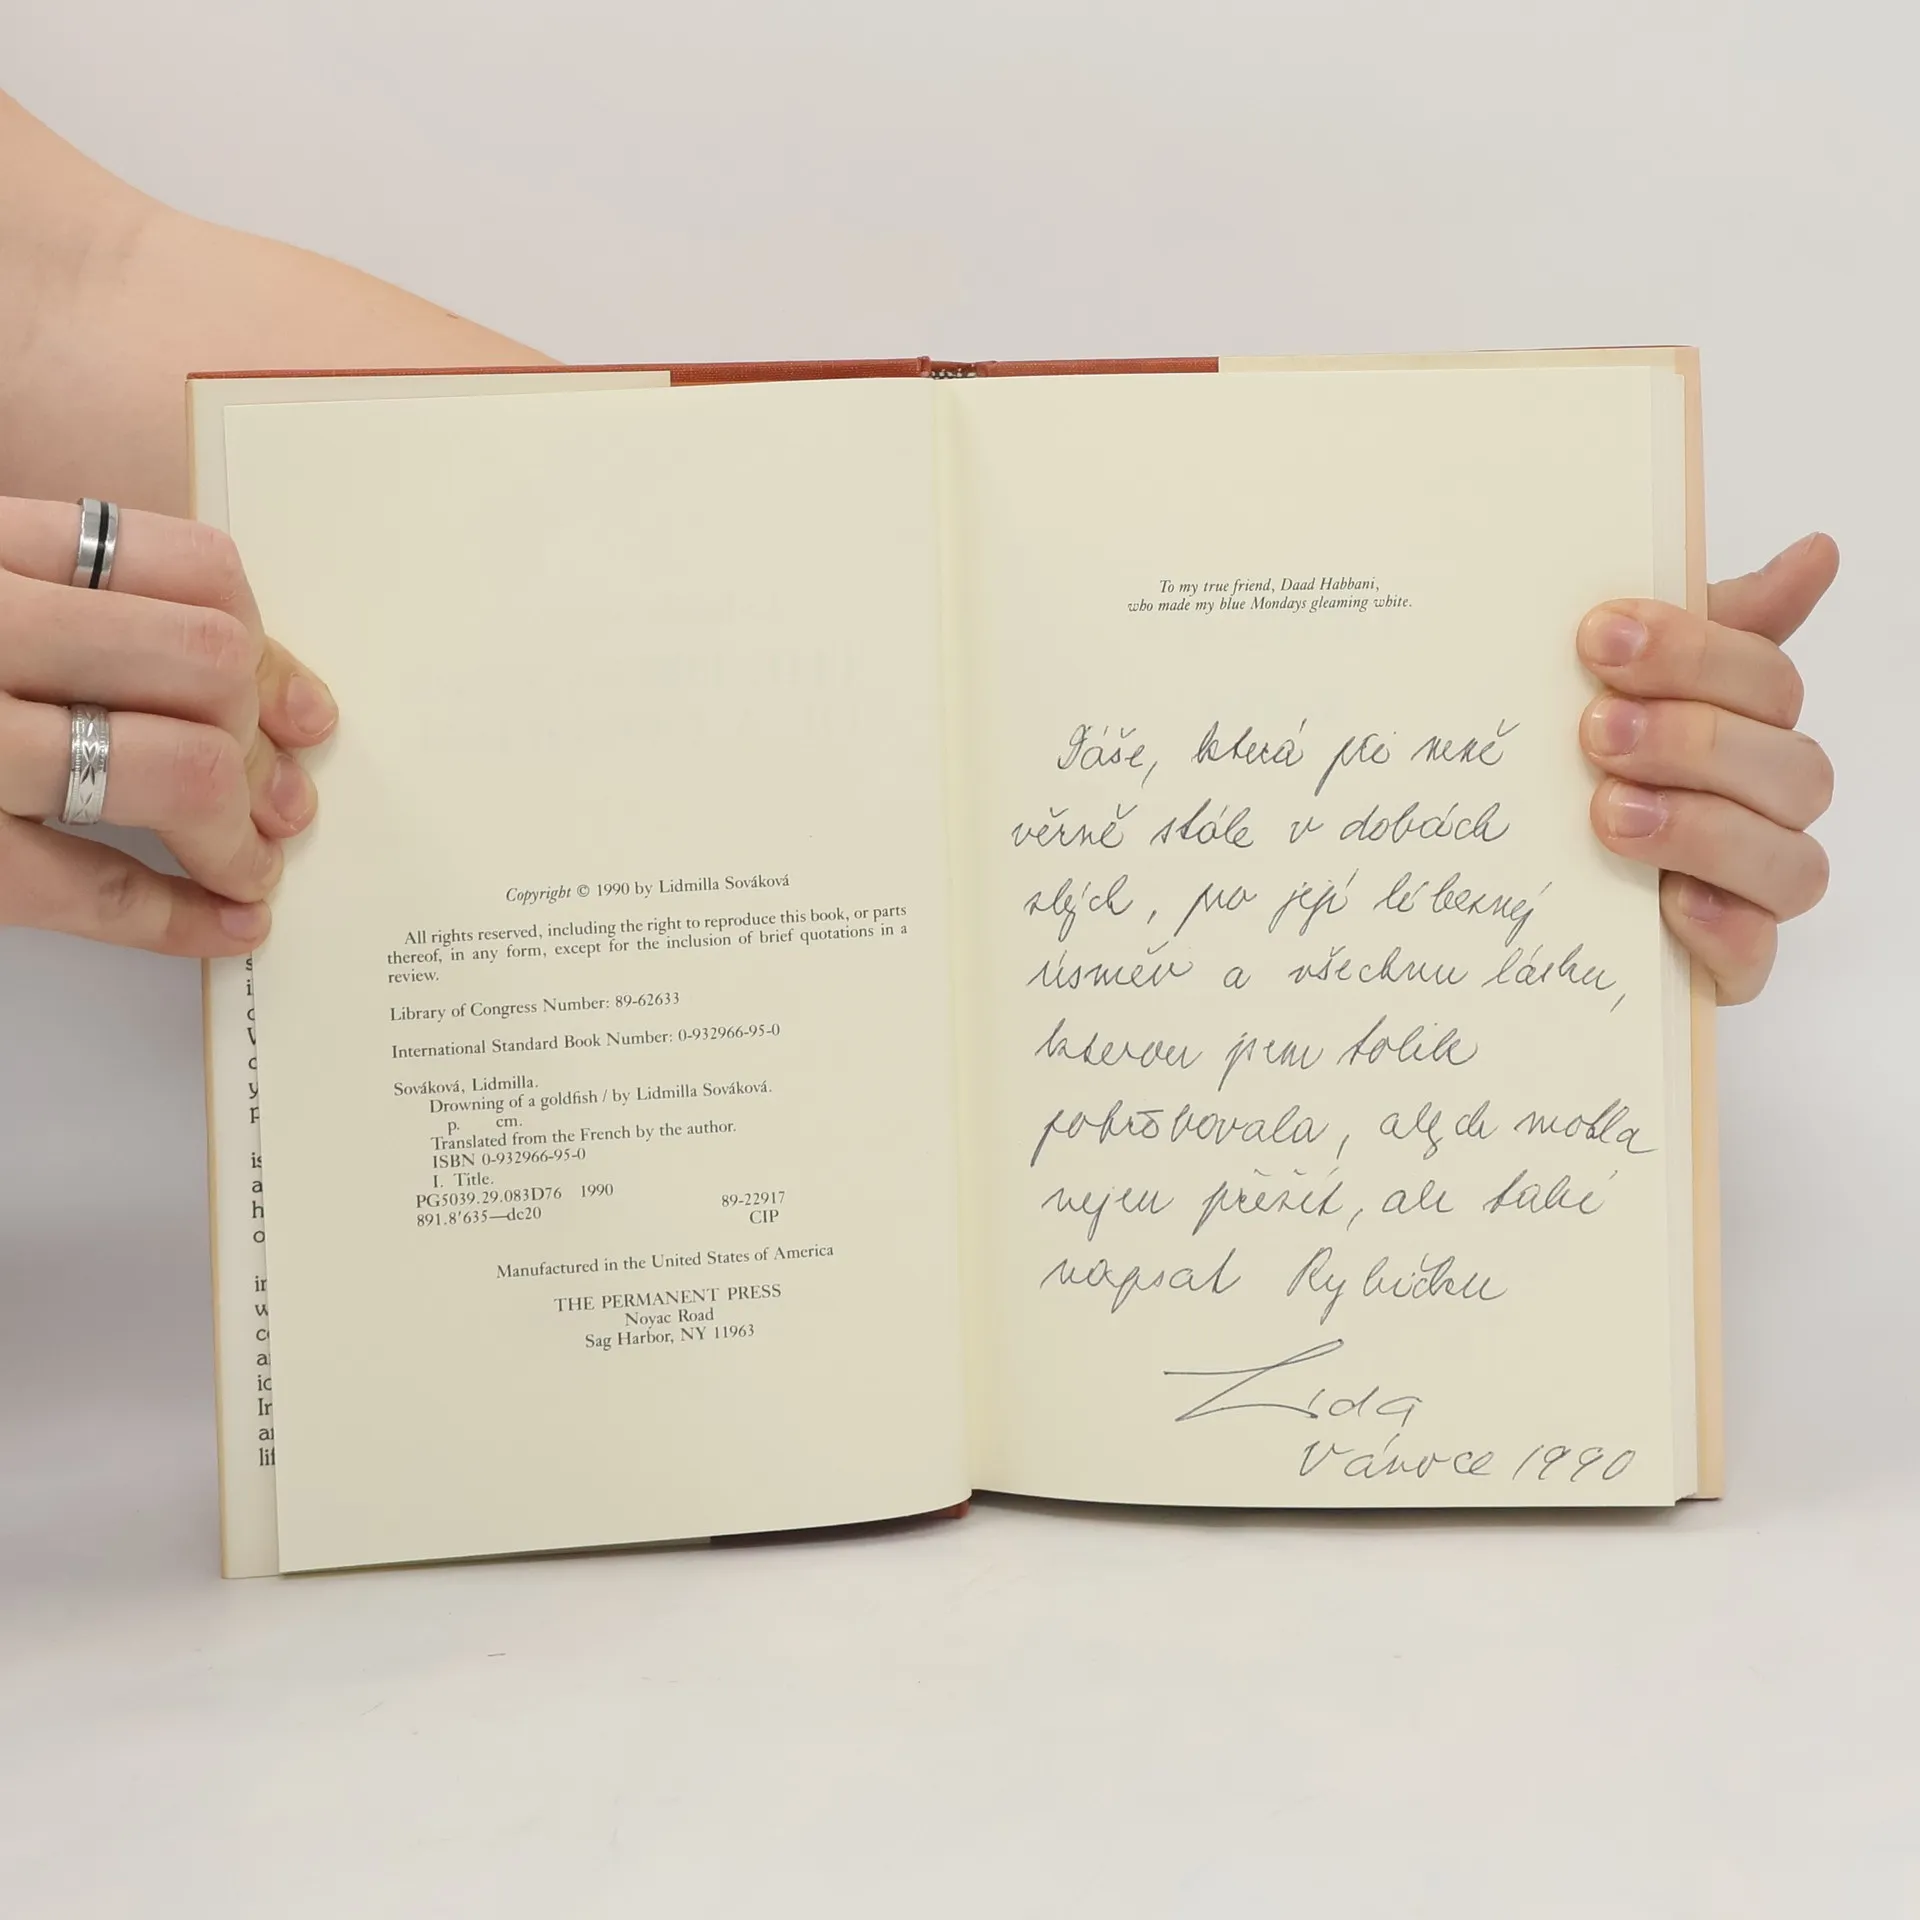 Copyright © 1990 by Lidmilla Sováková
All rights reserved, including the right to reproduce this book, or parts
thereof, in any form, except for the inclusion of brief quotations in a
review.
Library of Congress Number: 89-62633
International Standard Book Number: 0-932966-95-0
Sováková, Lidmilla.
Drowning of a goldfish / by Lidmilla Sováková.
p. cm.
Translated from the French by the author.
ISBN 0-932966-95-0
I. Title.
PG5039.29.083D76 1990 89-22917
891.8'635—dc20 CIP
Manufactured in the United States of America
THE PERMANENT PRESS
Noyac Road
Sag Harbor, NY 11963
To my true friend, Daad Habbani,
who made my blue Mondays gleaming white.
Táše, která při mně
věrně stála v dobách
zlých, pro její líbezný
úsměv a všechnu lásku,
kterou jsem tolik
potřebovala, abych mohla
nejen přežít, ale také
napsat Rybičku
Lida
Vánoce 1990